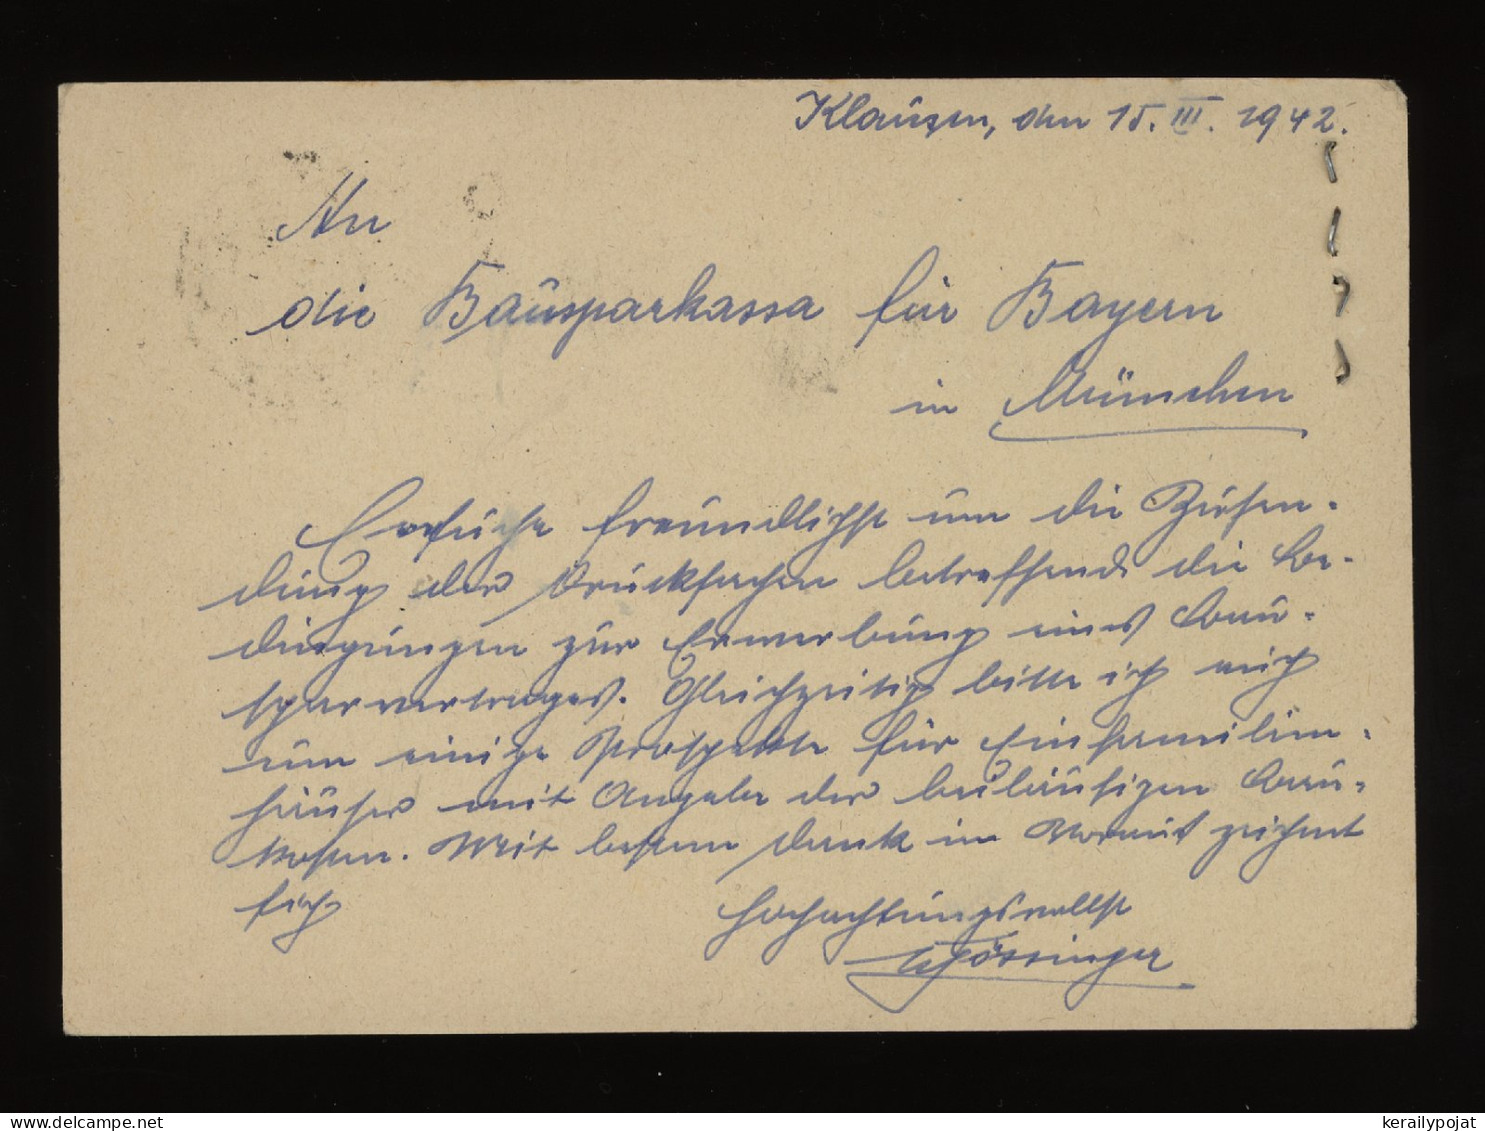 Klausen, den 15. III. 1942.
An
die Bausparkassa für Bayern
in München
Ersuche freundlichst um die Zusen-
dung der Drucksachen betreffend die Be-
dingungen zur Erwerbung eines Bau-
sparvertrages. Gleichzeitig bitte ich auch
um einige Prospekte für Einfamilien-
häuser mit Angabe der beiläufigen Bau-
kosten. Mit bestem Dank im Voraus zeichnet
sich
Hochachtungsvollst
kerailypojat